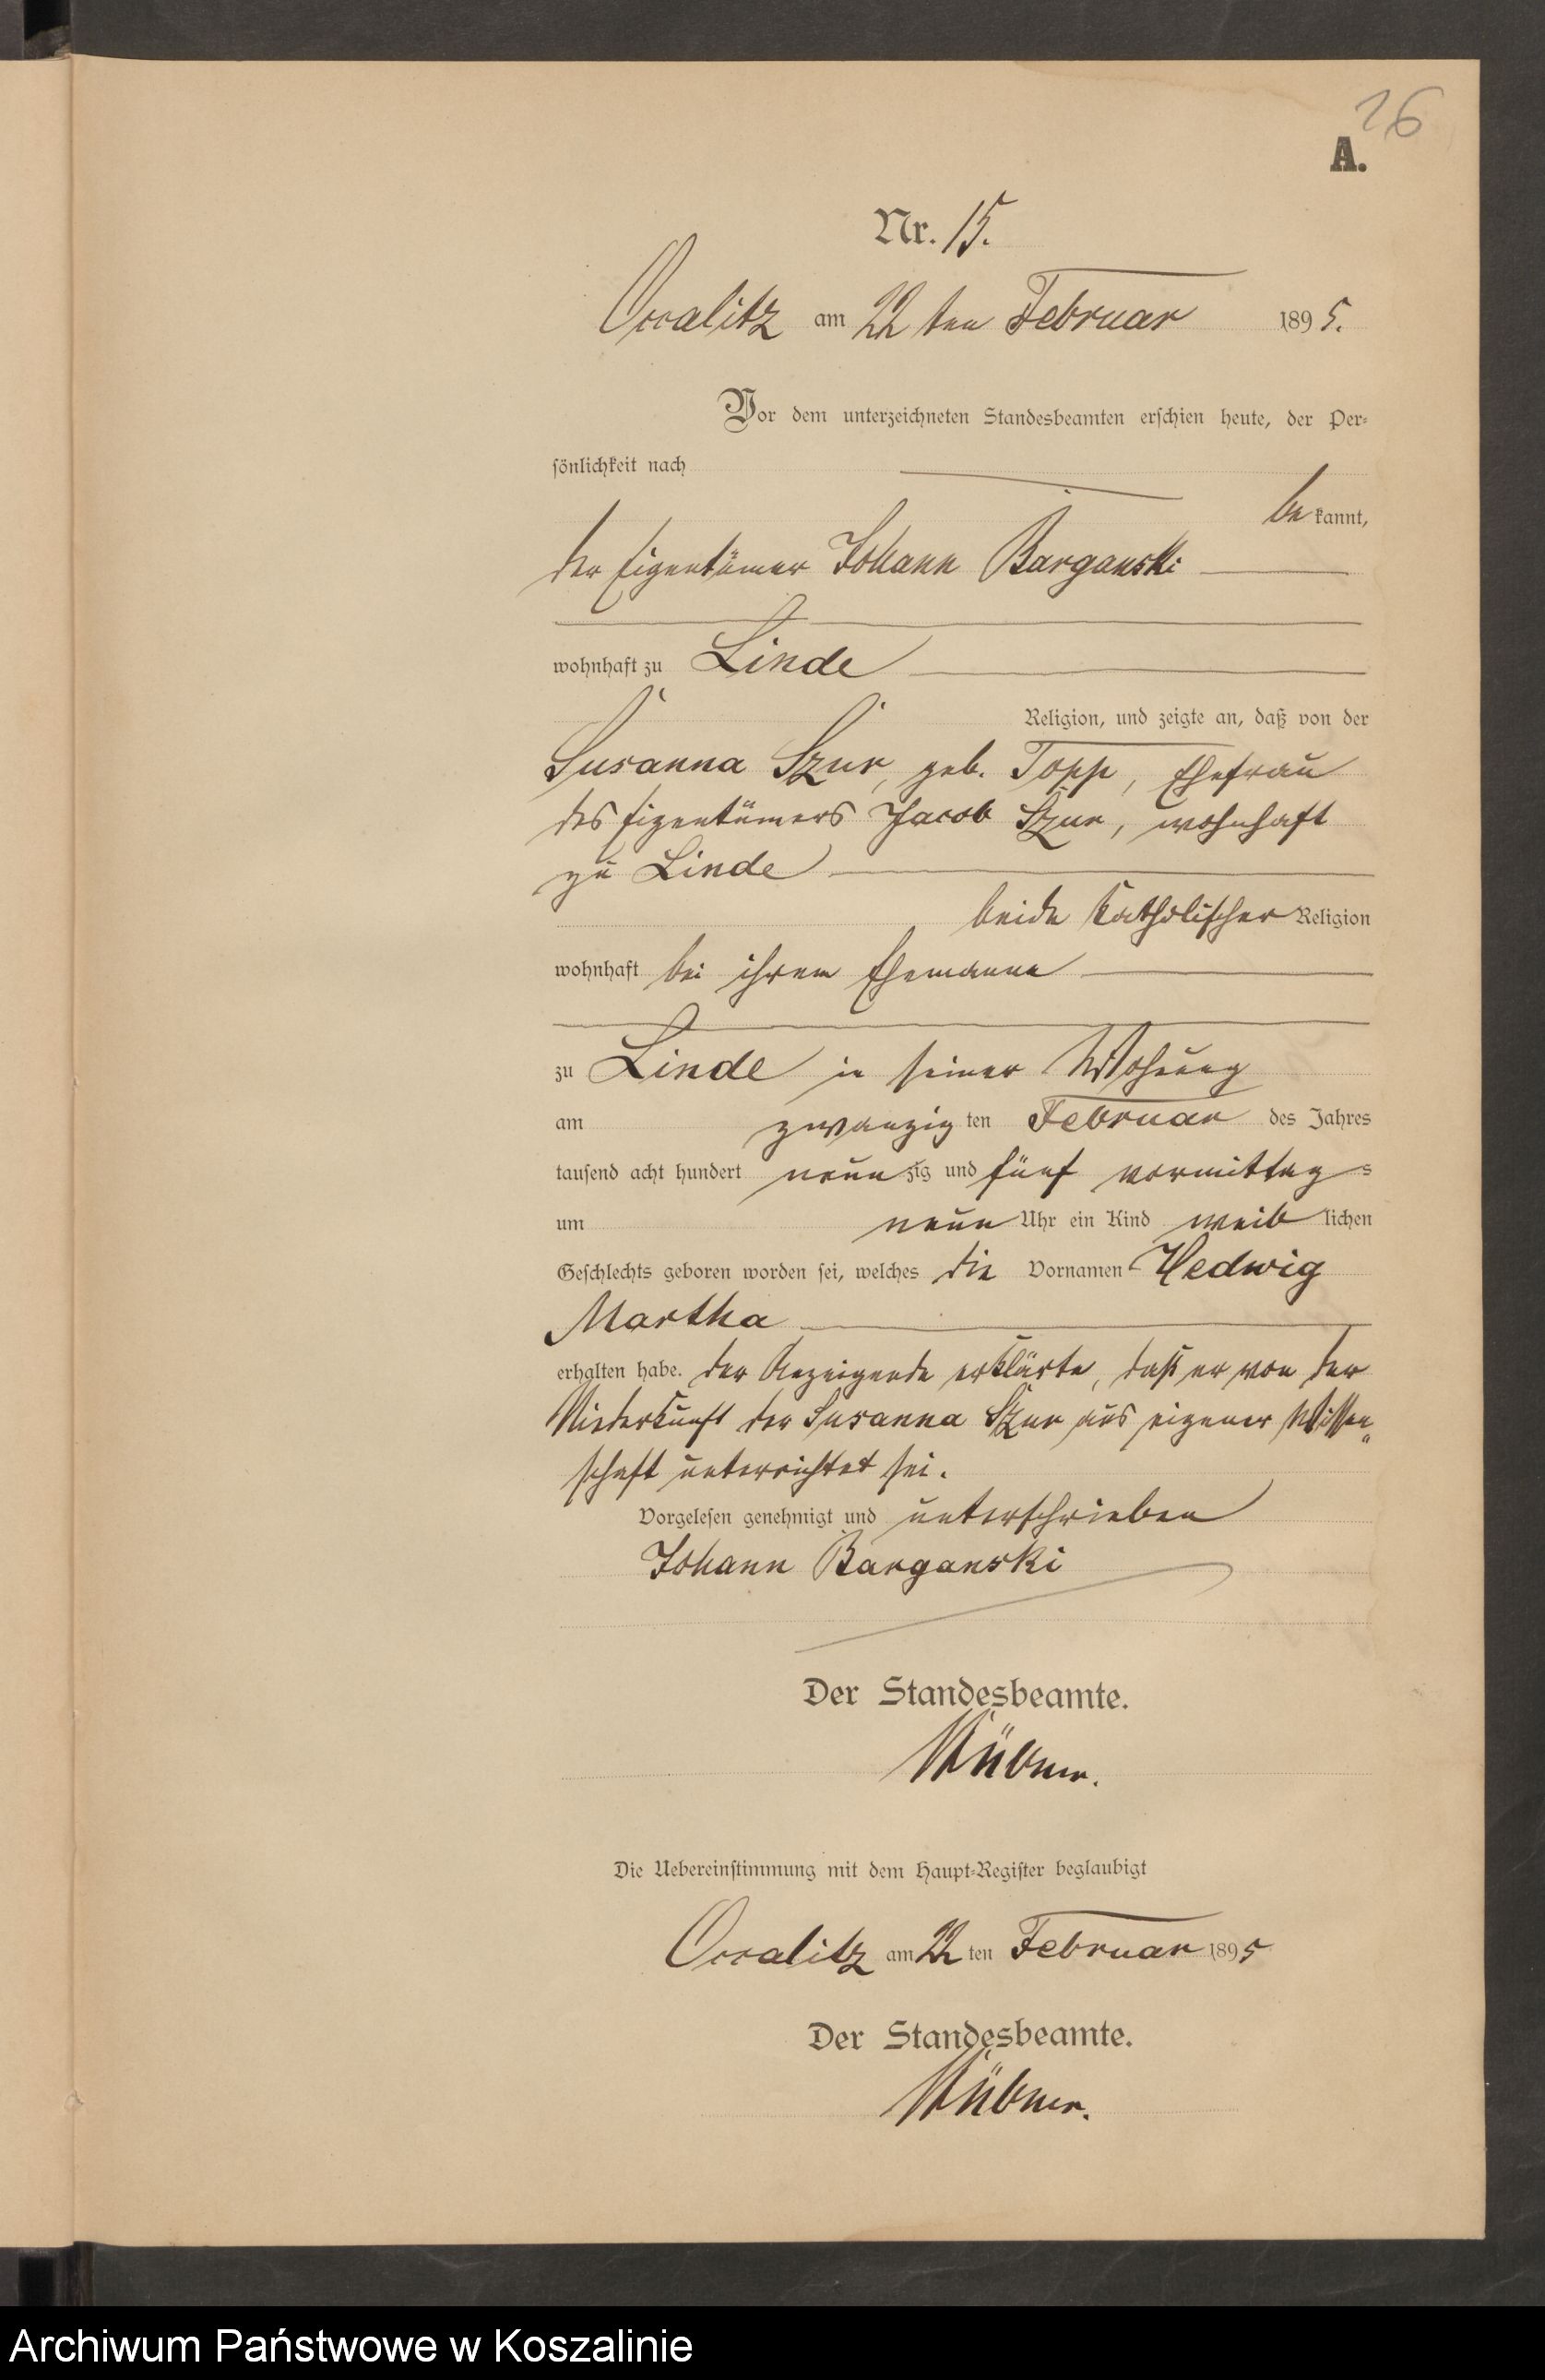 26
A.
Nr. 15.
Occalitz am 22 ten Februar 1895.
Vor dem unterzeichneten Standesbeamten erschien heute, der Per-
sönlichkeit nach
be kannt,
der Eigentümer Johann Barganski
wohnhaft zu Linde
Religion, und zeigte an, daß von der
Susanna Szur, geb. Topp, Ehefrau
des Eigentümers Jacob Szur, wohnhaft
zu Linde
beide katholischer Religion
wohnhaft bei ihrem Ehemanne
zu Linde in seiner Wohnung
am zwanzig ten Februar des Jahres
tausend acht hundert neunzig und fünf vormittags
um neun Uhr ein Kind weiblichen
Geschlechts geboren worden sei, welches die Vornamen Hedwig
Martha
erhalten habe. der Anzeigende erklärte, daß er von der
Niederkunft der Susanna Szur aus eigener Wissen-
schaft unterrichtet sei.
Vorgelesen genehmigt und unterschrieben
Johann Barganski
Der Standesbeamte.
Die Uebereinstimmung mit dem Haupt-Register beglaubigt
Occalitz am 22 ten Februar 1895
Der Standesbeamte.
Archiwum Państwowe w Koszalinie